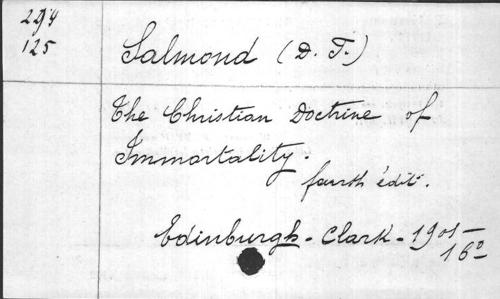 294
125
Salmond (D. T.)
The Christian Doctrine of
Immortality.
fourth édit.
Edinburgh - Clark - 1901 -
16º